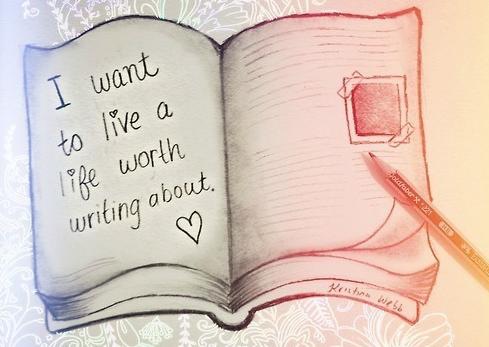 I want
to live a
life worth
writing about.
Kristina Webb